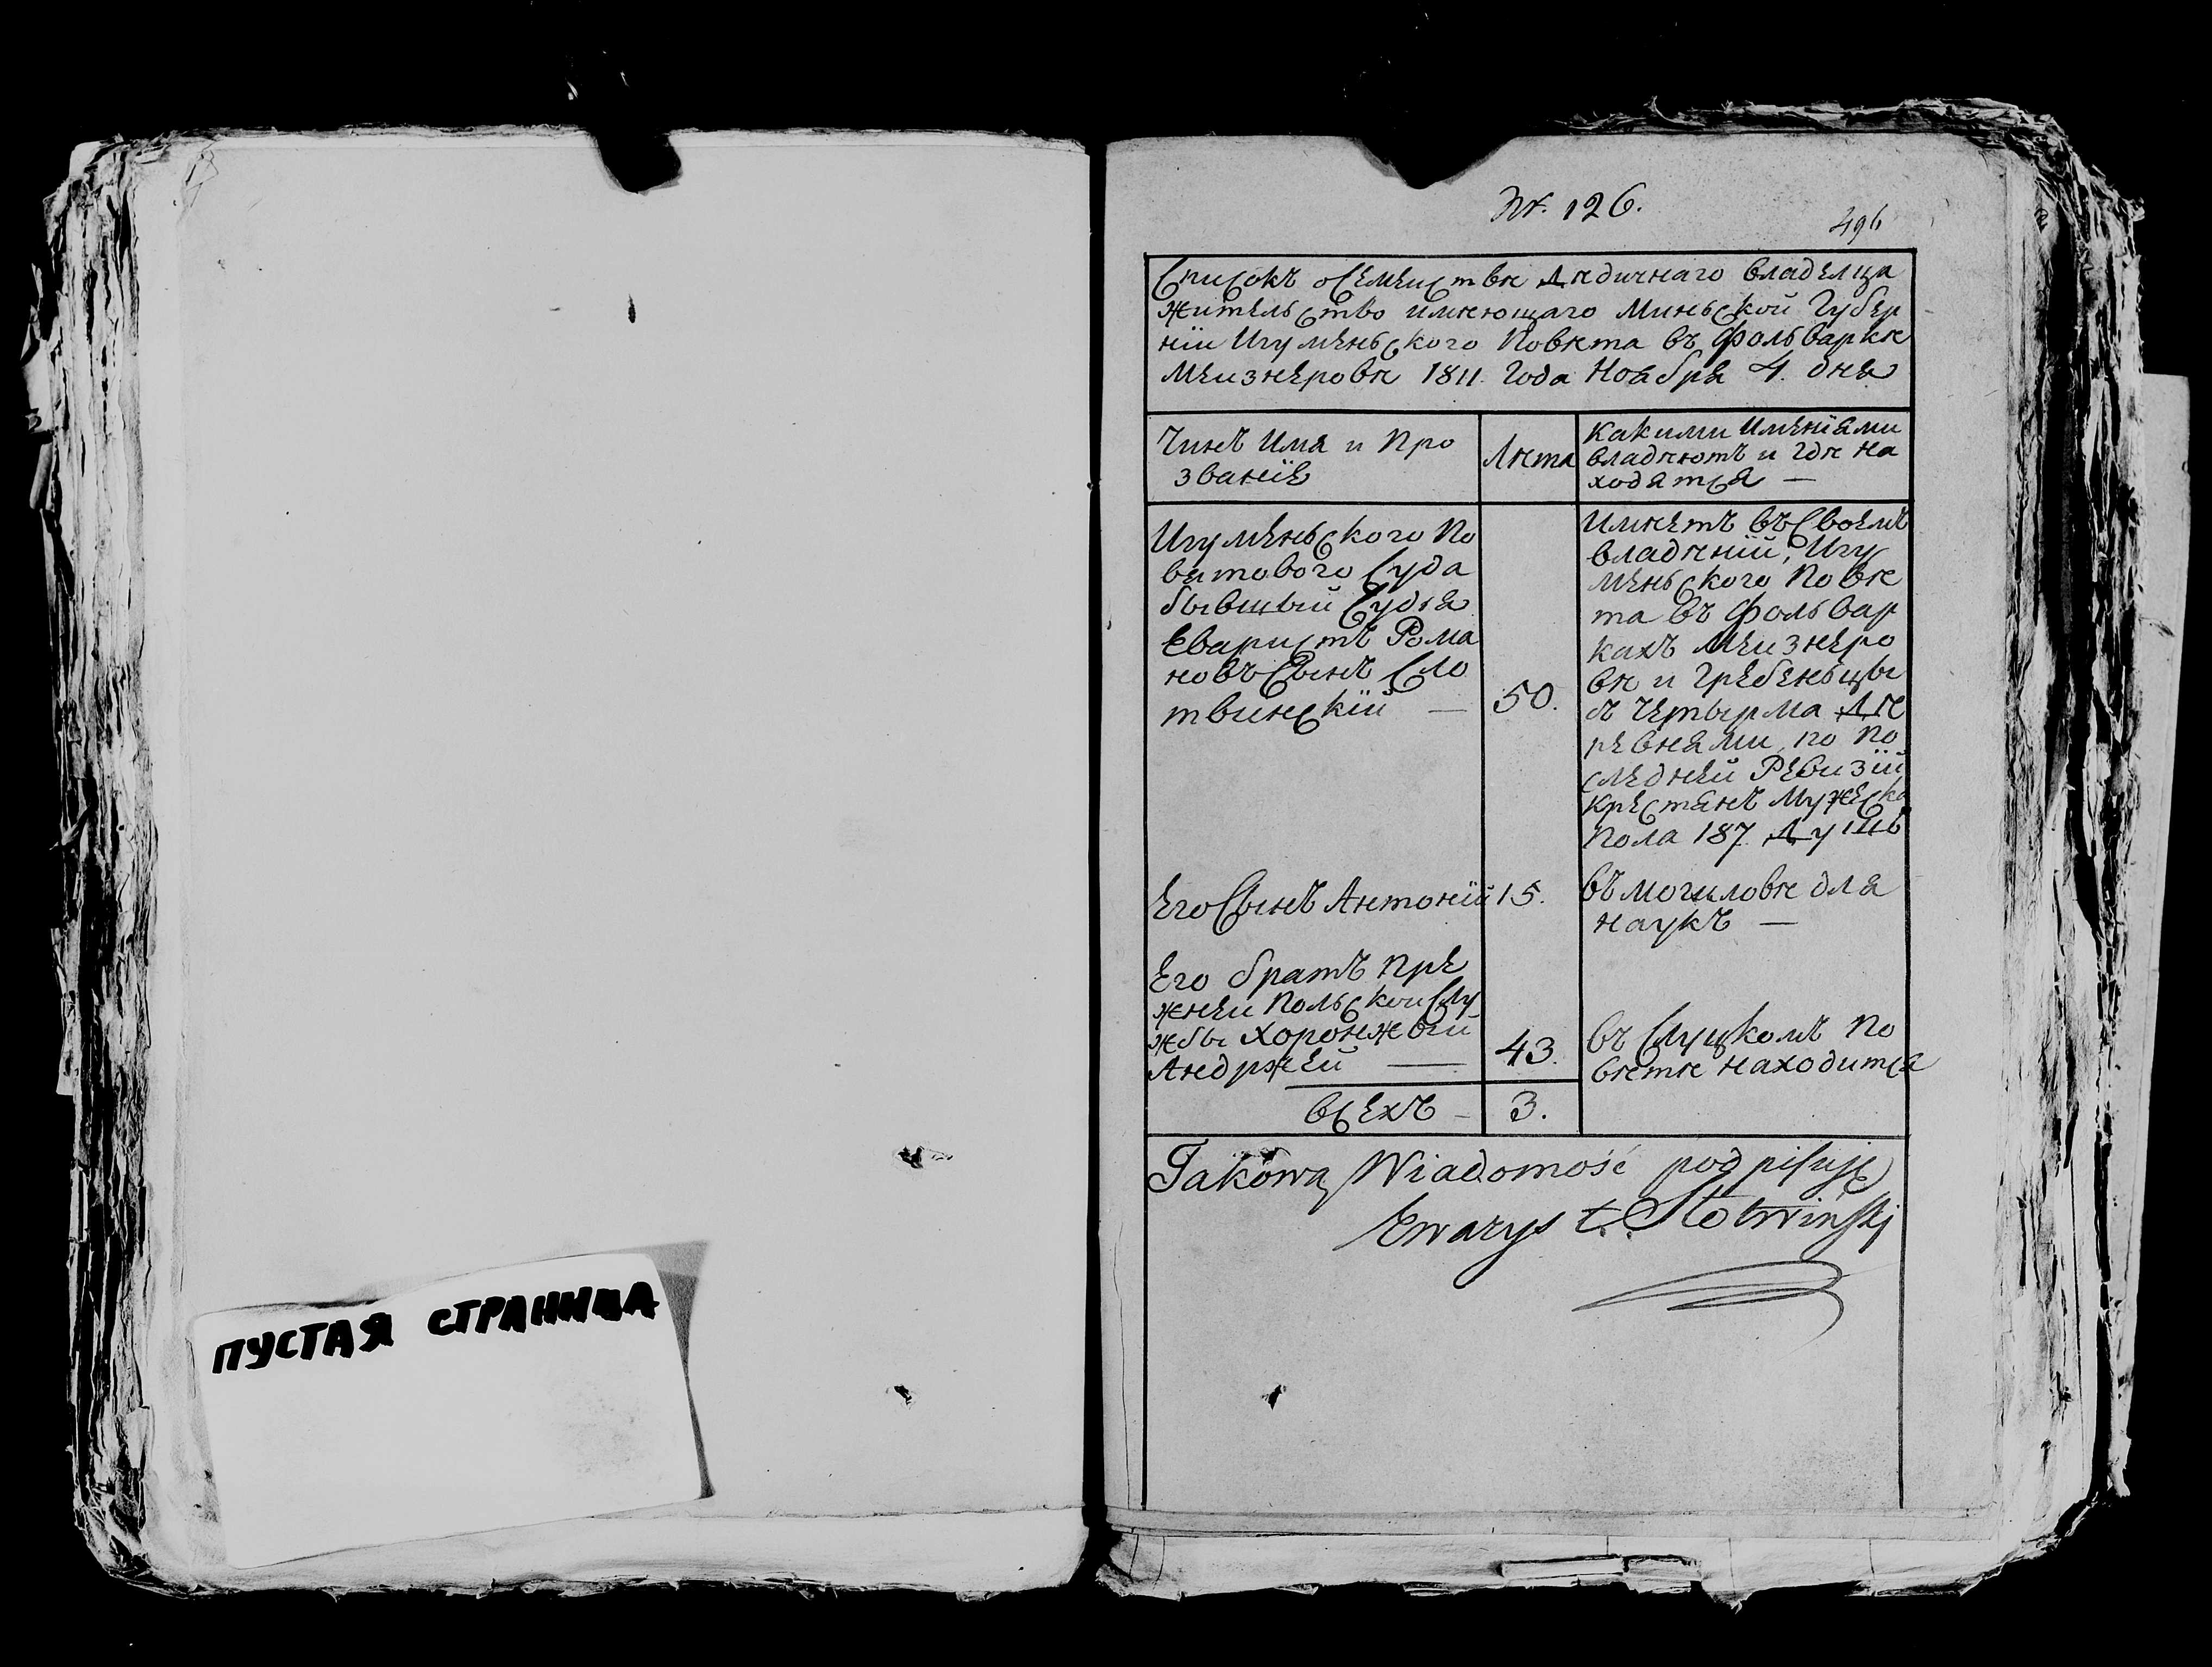 ПУСТАЯ СТРАНИЦА
№. 126.
496
Списокъ осемеиствѣ Дѣдичнаго владелца
жительство имѣющаго Миньской Губер
ніи Игуменьского Повѣта въ фольваркѣ
Меизнеровѣ 1811. Года Ноября 4. дня
Чинъ Имя и Про
званіе
Лѣта
какими Именіями
владѣютъ и гдѣ на
ходятся —
Игуменьского По
витового Суда
бывшый Судья
Еваристъ Рома
новъ Сынъ Сло
твинскій —
50.
Имѣетъ въ Своемъ
владѣніи, Игу
меньского Повѣ
та въ фольвар
кахъ Меизнеро
вѣ и Гребеньцы
съ четырма Дѣ
ревнями, по По
следней Ревизіи
крестянъ Мужеска
Пола 187. Душъ
Его Сынъ Антоній
15.
въ могиловѣ для
наукъ —
Его братъ пре
жнеи Польскои Слу
жбы Хоронжый
Анджей —
43.
въ Слуцкомъ По
вѣтѣ находится
всехъ —
3.
Takową Wiadomość podpisuję
Ewaryst Słotwiński